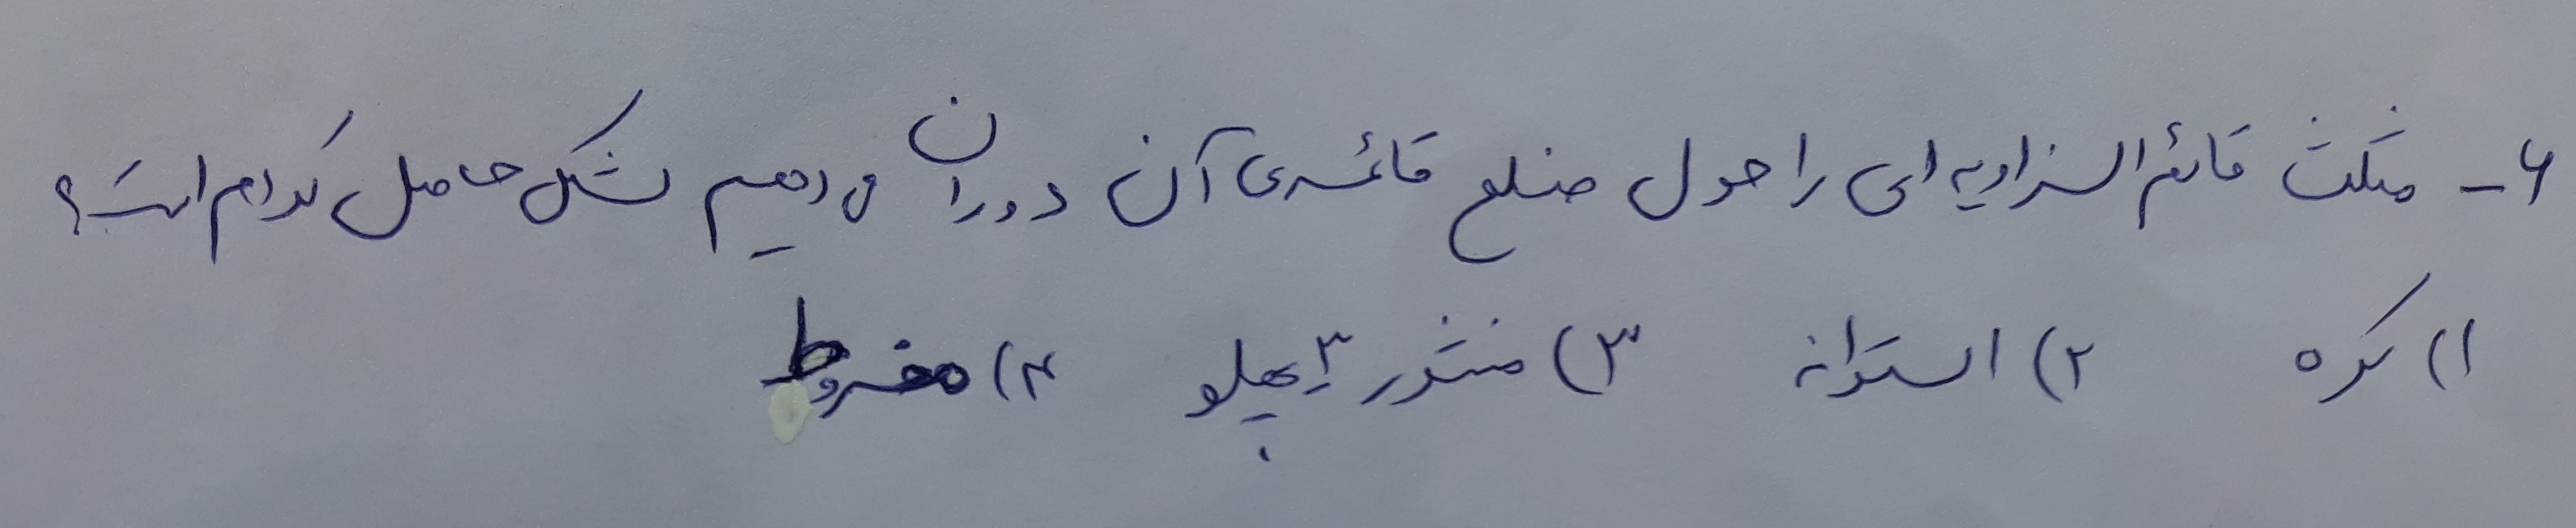 ۶- مثلث قائم الزاویه ای را حول ضلع قائمه ی آن دوران می دهیم شکل حاصل کدام است؟
۱) کره ۲) استوانه ۳) منشور ۳ پهلو ۴) مخروط